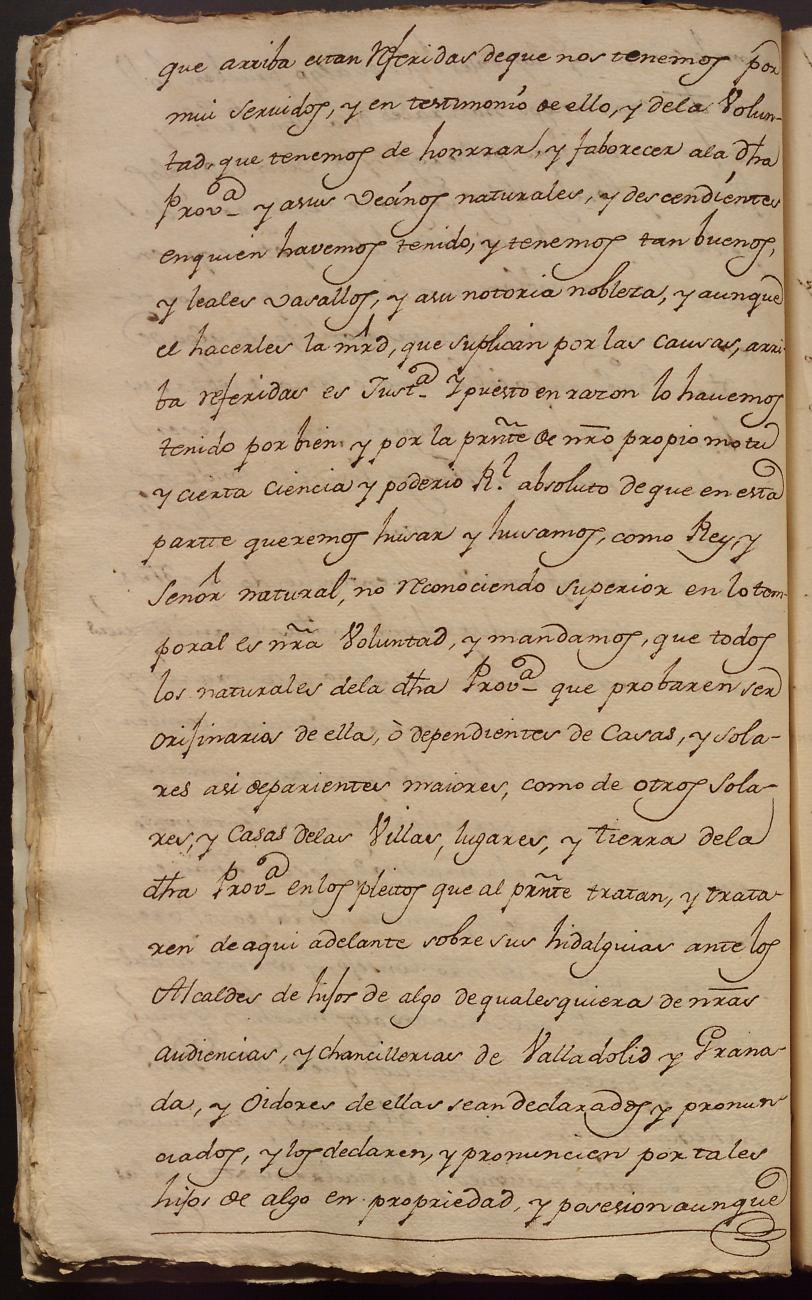 que arriba estan referidas deque nos tenemos por
mui seruidos, y en testimonio de ello, y dela Volun-
tad, que tenemos de honrrar, y faborecer ala dha
Prova y asus vecinos naturales, y descendientes
enquien havemos tenido, y tenemos tan buenos,
y leales vasallos, y asu notoria nobleza, y aunque
el hacerles la mrd, que suplican por las causas, arri-
ba referidas es Justa y puesto en razon lo havemos
tenido por bien y por la prnte de nro propio motu
y cierta ciencia y poderio Rl absoluto deque en esta
partte queremos husar y husamos, como Rey, y
Señor natural, no reconociendo superior en lo tem-
poral es nra Voluntad, y mandamos, que todos
los naturales dela dha Prova que probaren ser
orijinarios de ella, ò dependientes de Casas, y sola-
res asi deparientes maiores, como de otros sola-
res, y Casas delas Villas, lugares, y tierra dela
dha Prova en los pleitos que al prnte tratan, y trata-
ren deaqui adelante sobre sus hidalguias ante los
Alcaldes de hijos de algo dequalesquiera de nras
audiencias, y chancillerias de Valladolid y Grana-
da, y Oidores de ellas sean declarados y pronun-
ciados, y los declaren, y pronuncien por tales
hijos de algo en propriedad, y posesion aunque